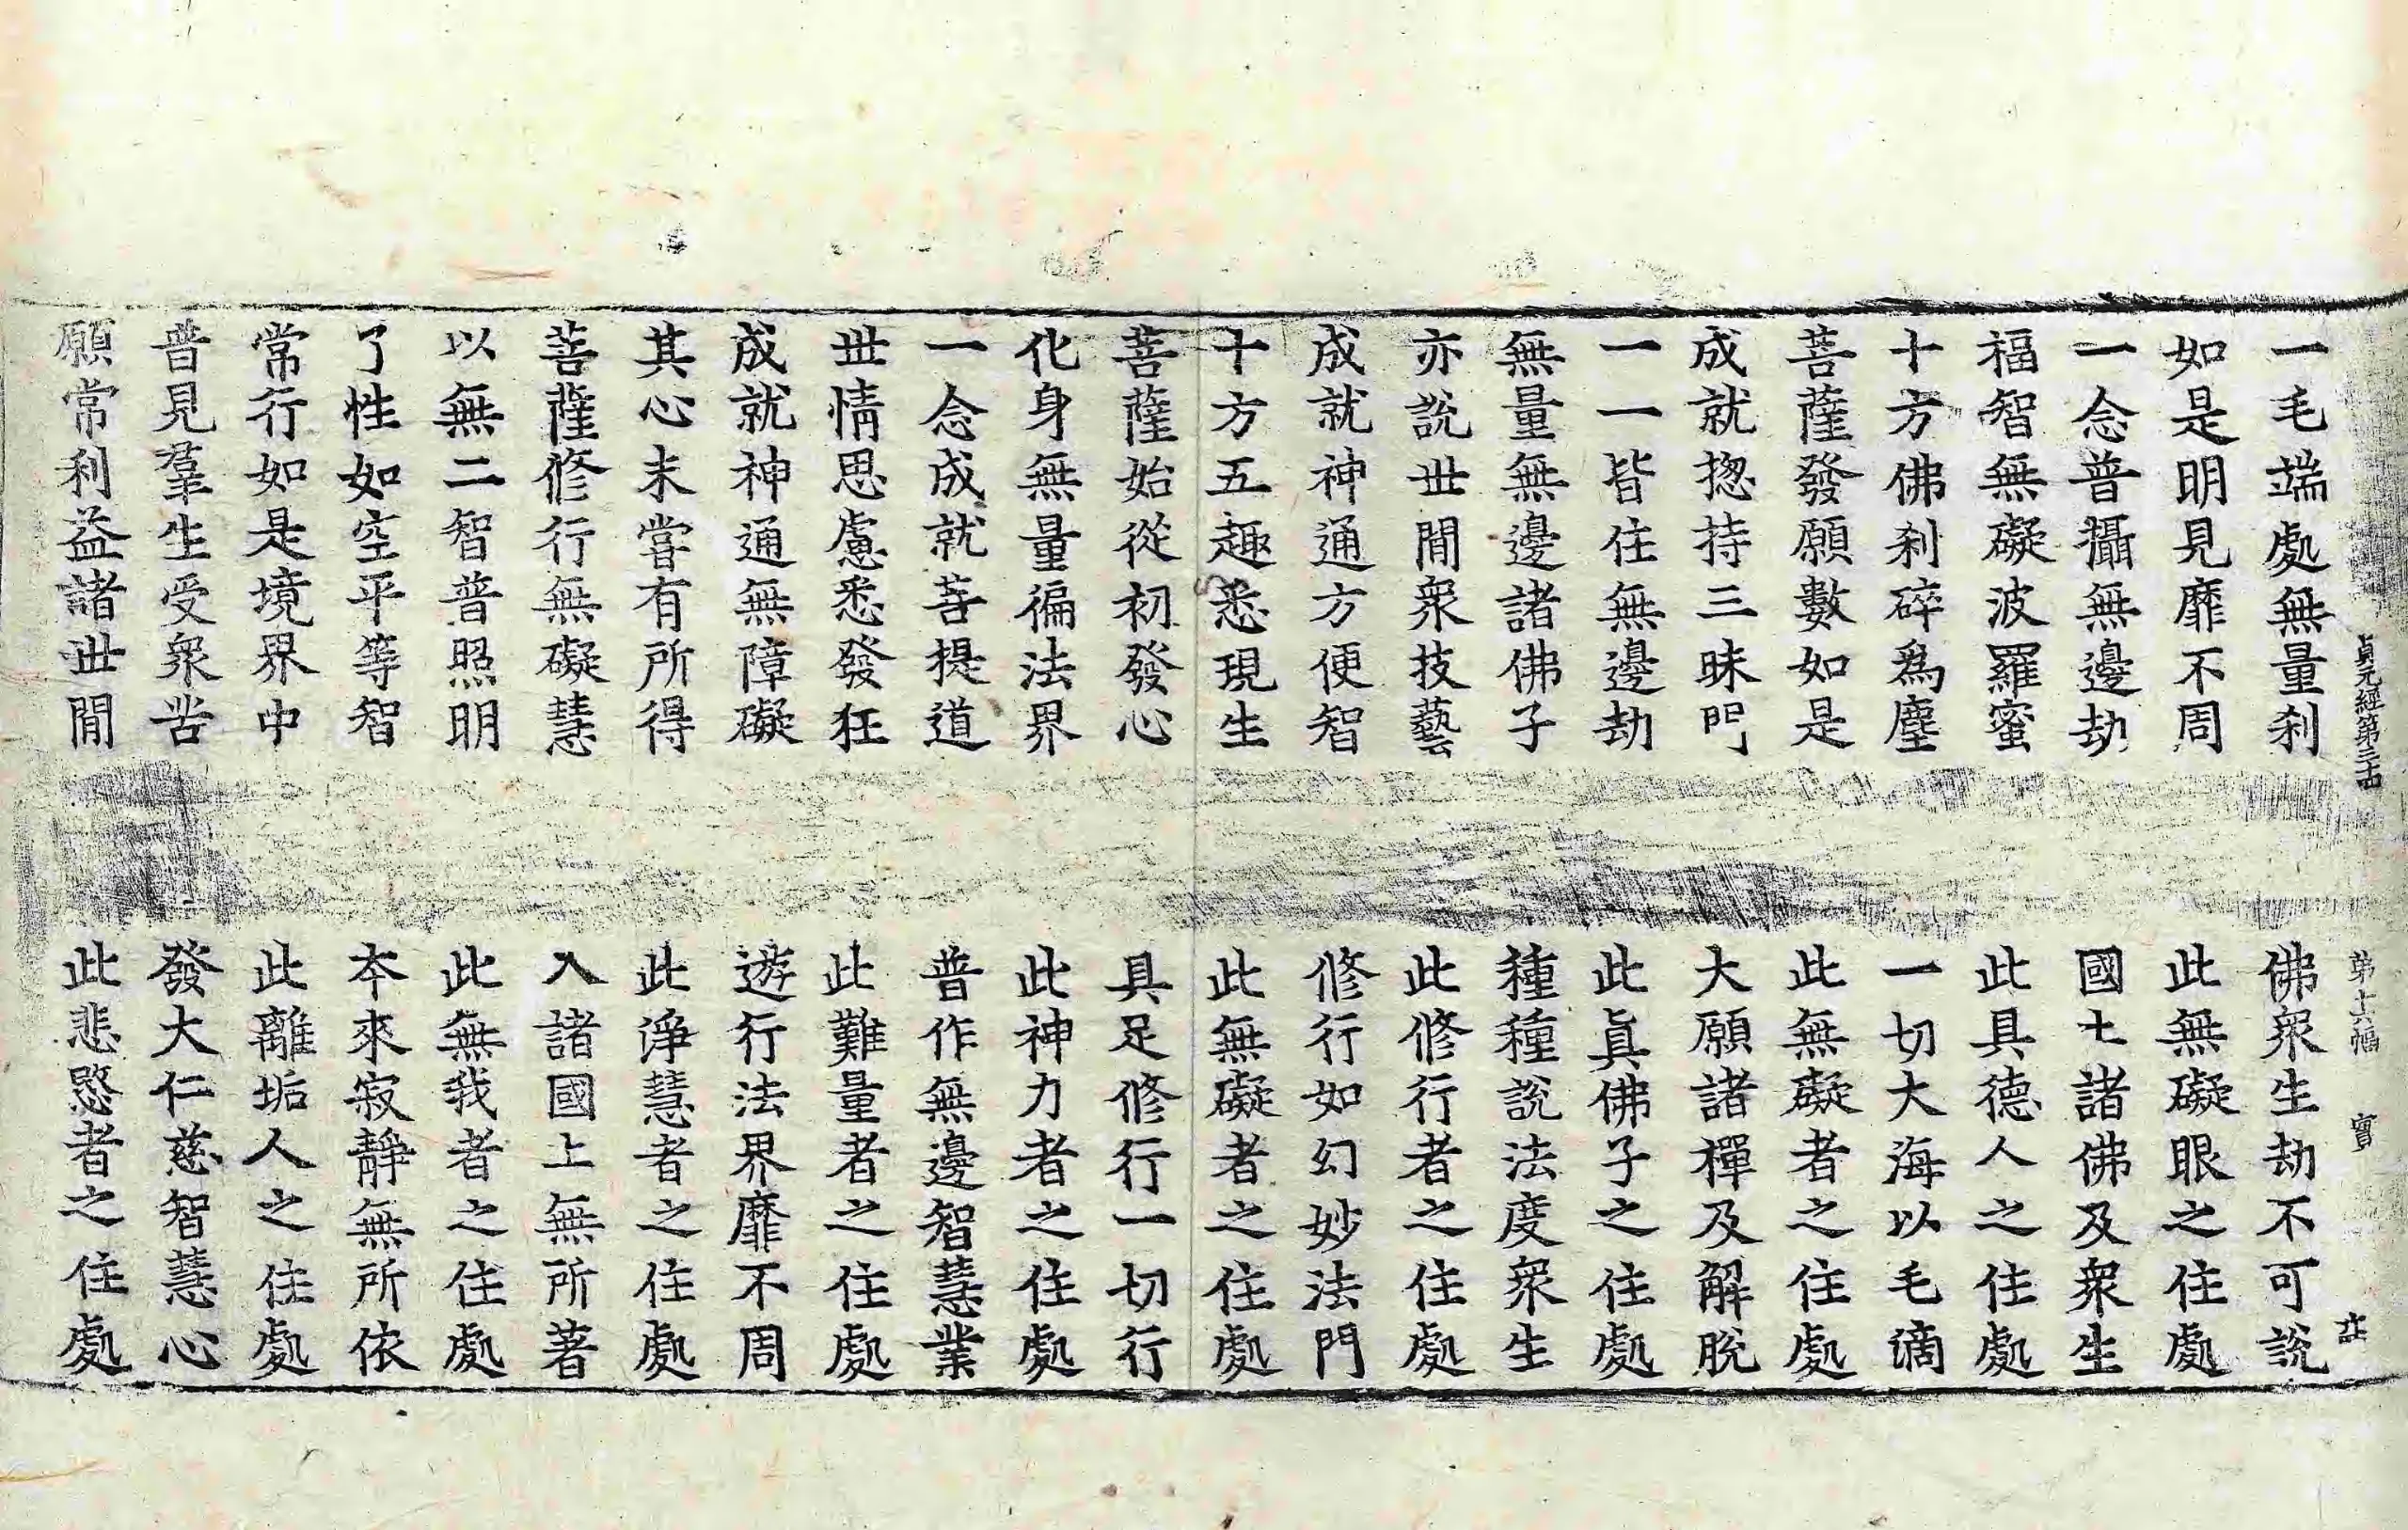 貞元經第三十四 第十六幅 實
一毛端處無量刹 佛衆生劫不可說
如是明見靡不周 此無礙眼之住處
一念普攝無邊劫 國土諸佛及衆生
福智無礙波羅蜜 此具德人之住處
十方佛刹碎爲塵 一切大海以毛滴
菩薩發願數如是 此無礙者之住處
成就揔持三昧門 大願諸禪及解脫
一一皆住無邊劫 此眞佛子之住處
無量無邊諸佛子 種種說法度衆生
亦說世間衆技藝 此修行者之住處
成就神通方便智 修行如幻妙法門
十方五趣悉現生 此無礙者之住處
菩薩始從初發心 具足修行一切行
化身無量徧法界 此神力者之住處
一念成就菩提道 普作無邊智慧業
世情思慮悉發狂 此難量者之住處
成就神通無障礙 遊行法界靡不周
其心未嘗有所得 此淨慧者之住處
菩薩修行無礙慧 入諸國土無所著
以無二智普照明 此無我者之住處
了性如空平等智 本來寂靜無所依
常行如是境界中 此離垢人之住處
普見羣生受衆苦 發大仁慈智慧心
願常利益諸世間 此悲愍者之住處